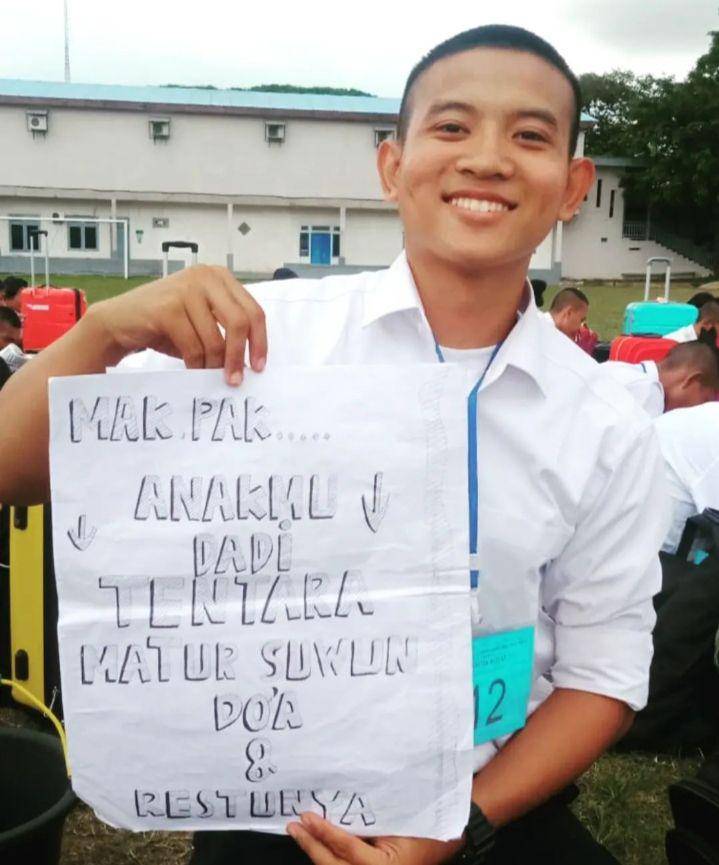 MAK.PAK.....
ANAKMU
DADi
TENTARA
MATUR SUWUN
DO'A
&
RESTUNYA
12